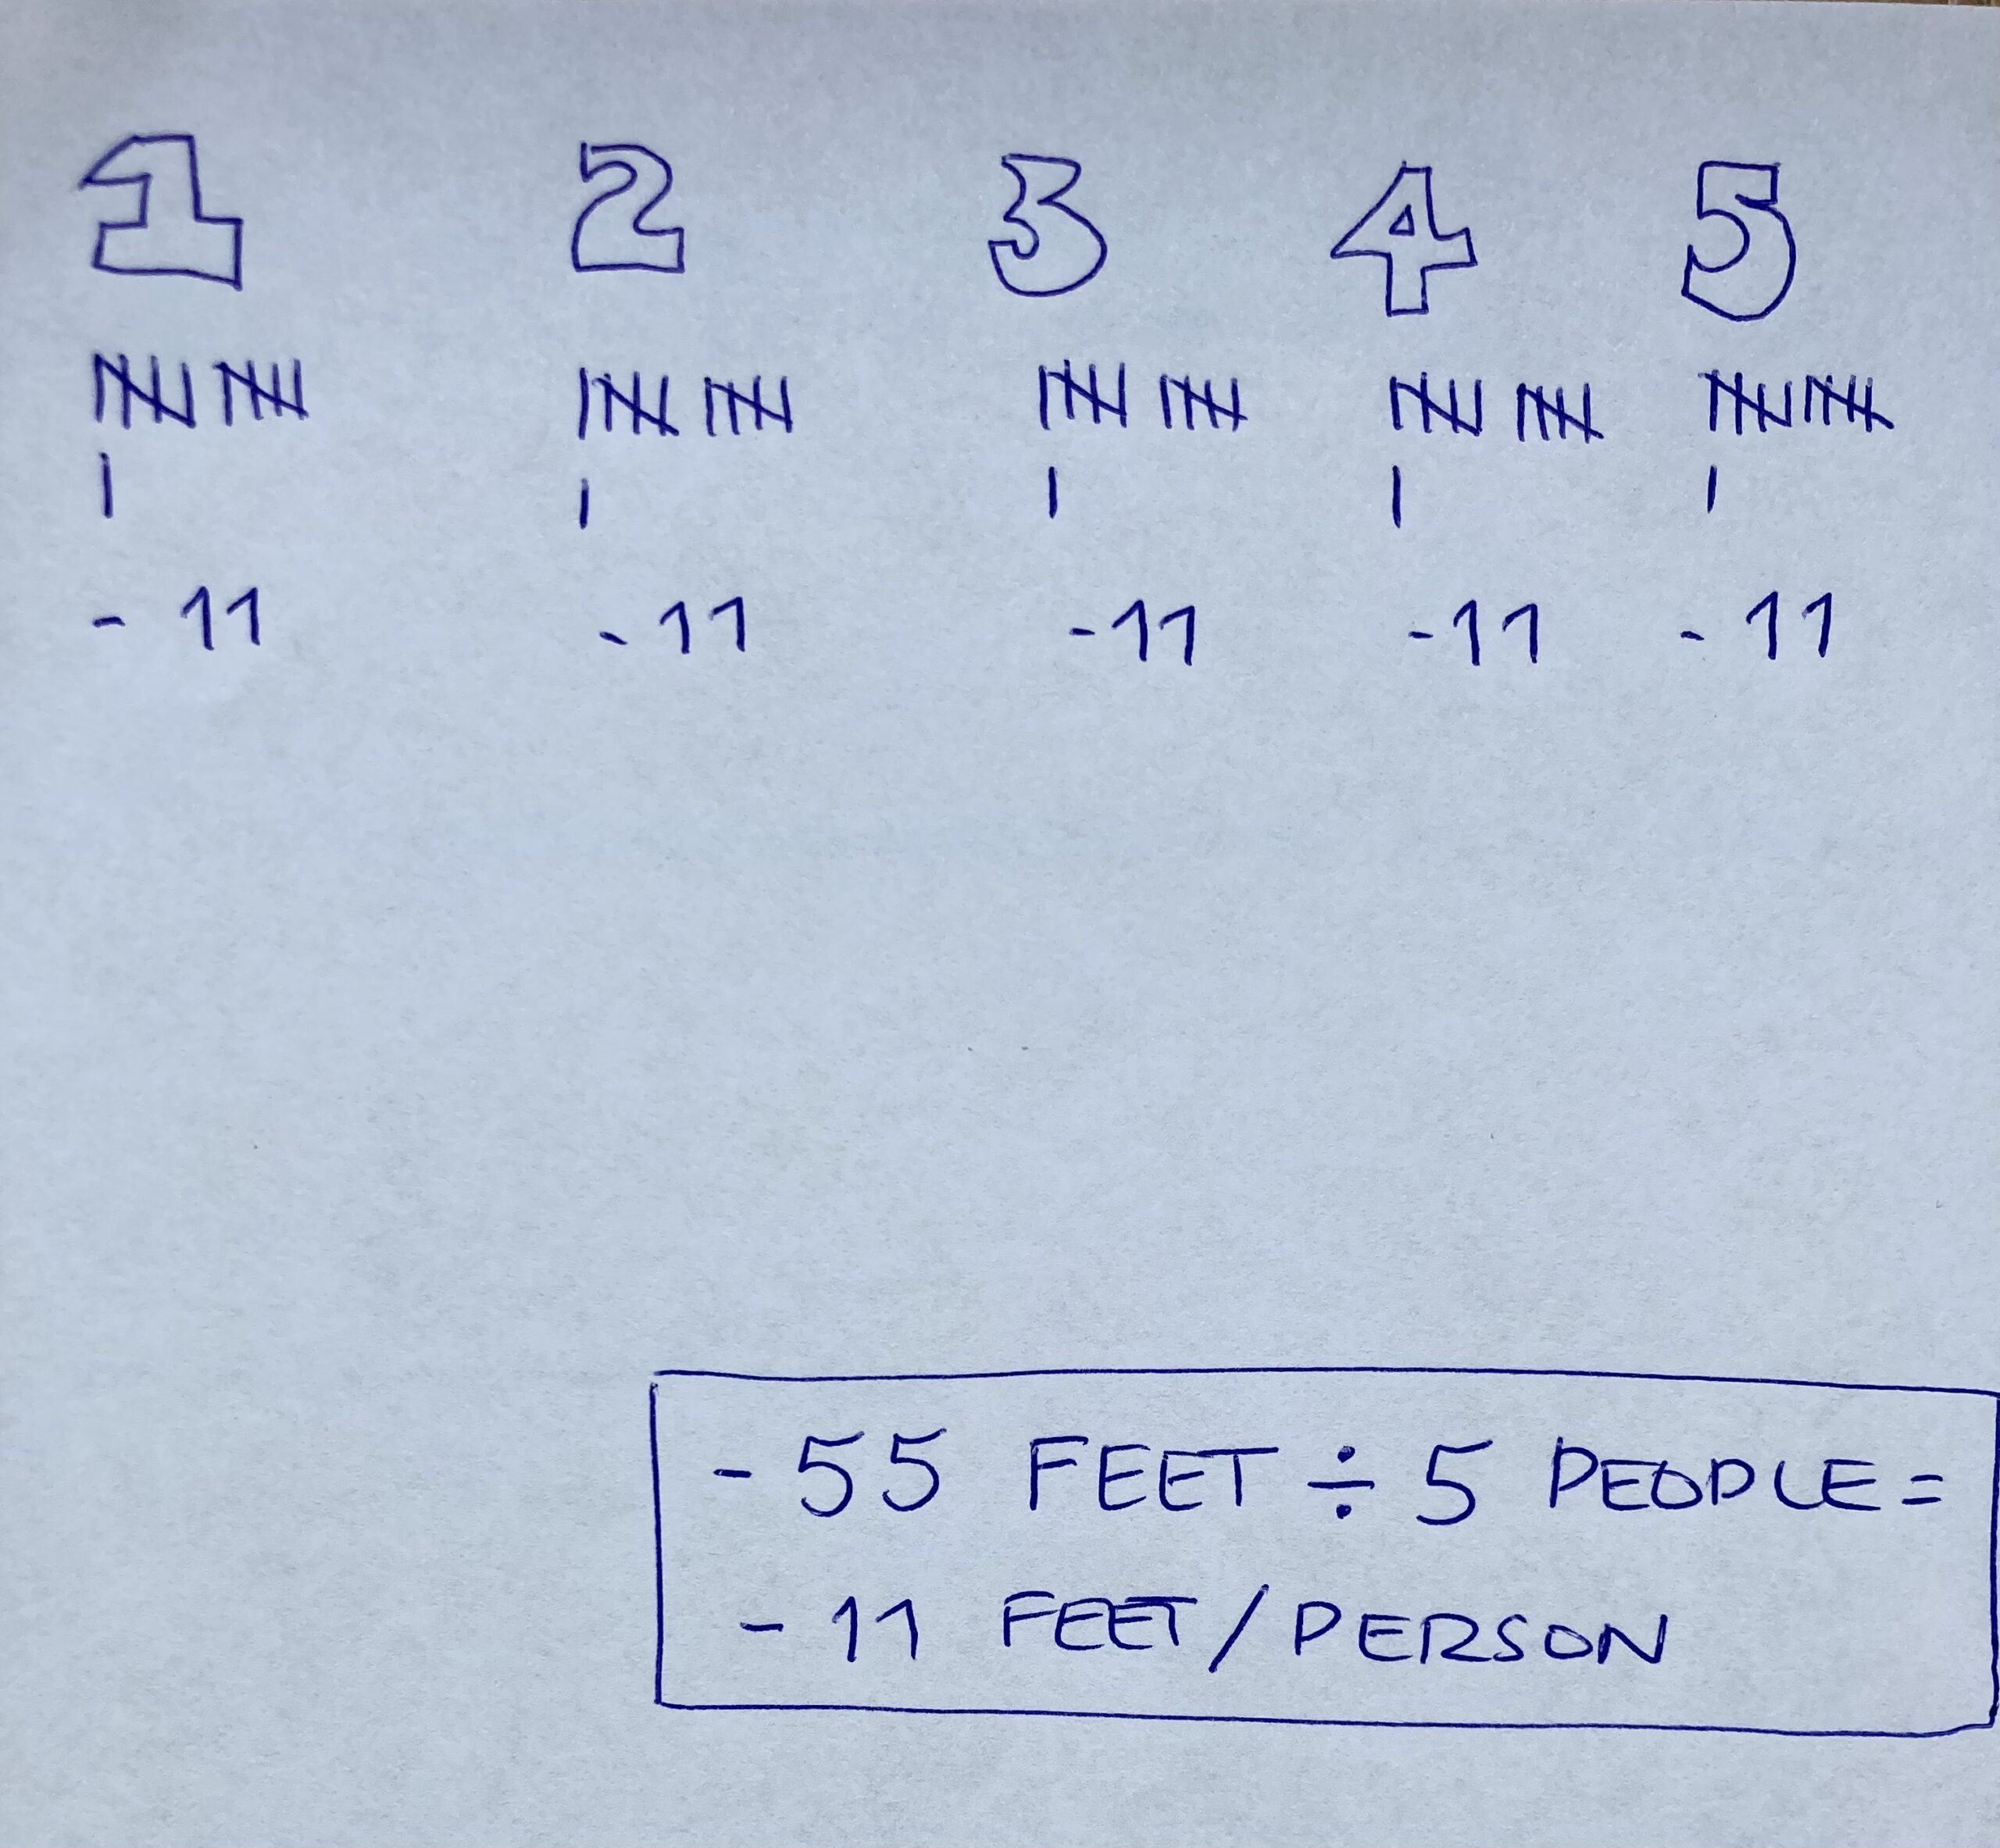 1 2 3 4 5
- 11 - 11 - 11 - 11 - 11
- 55 FEET ÷ 5 PEOPLE =
- 11 FEET / PERSON